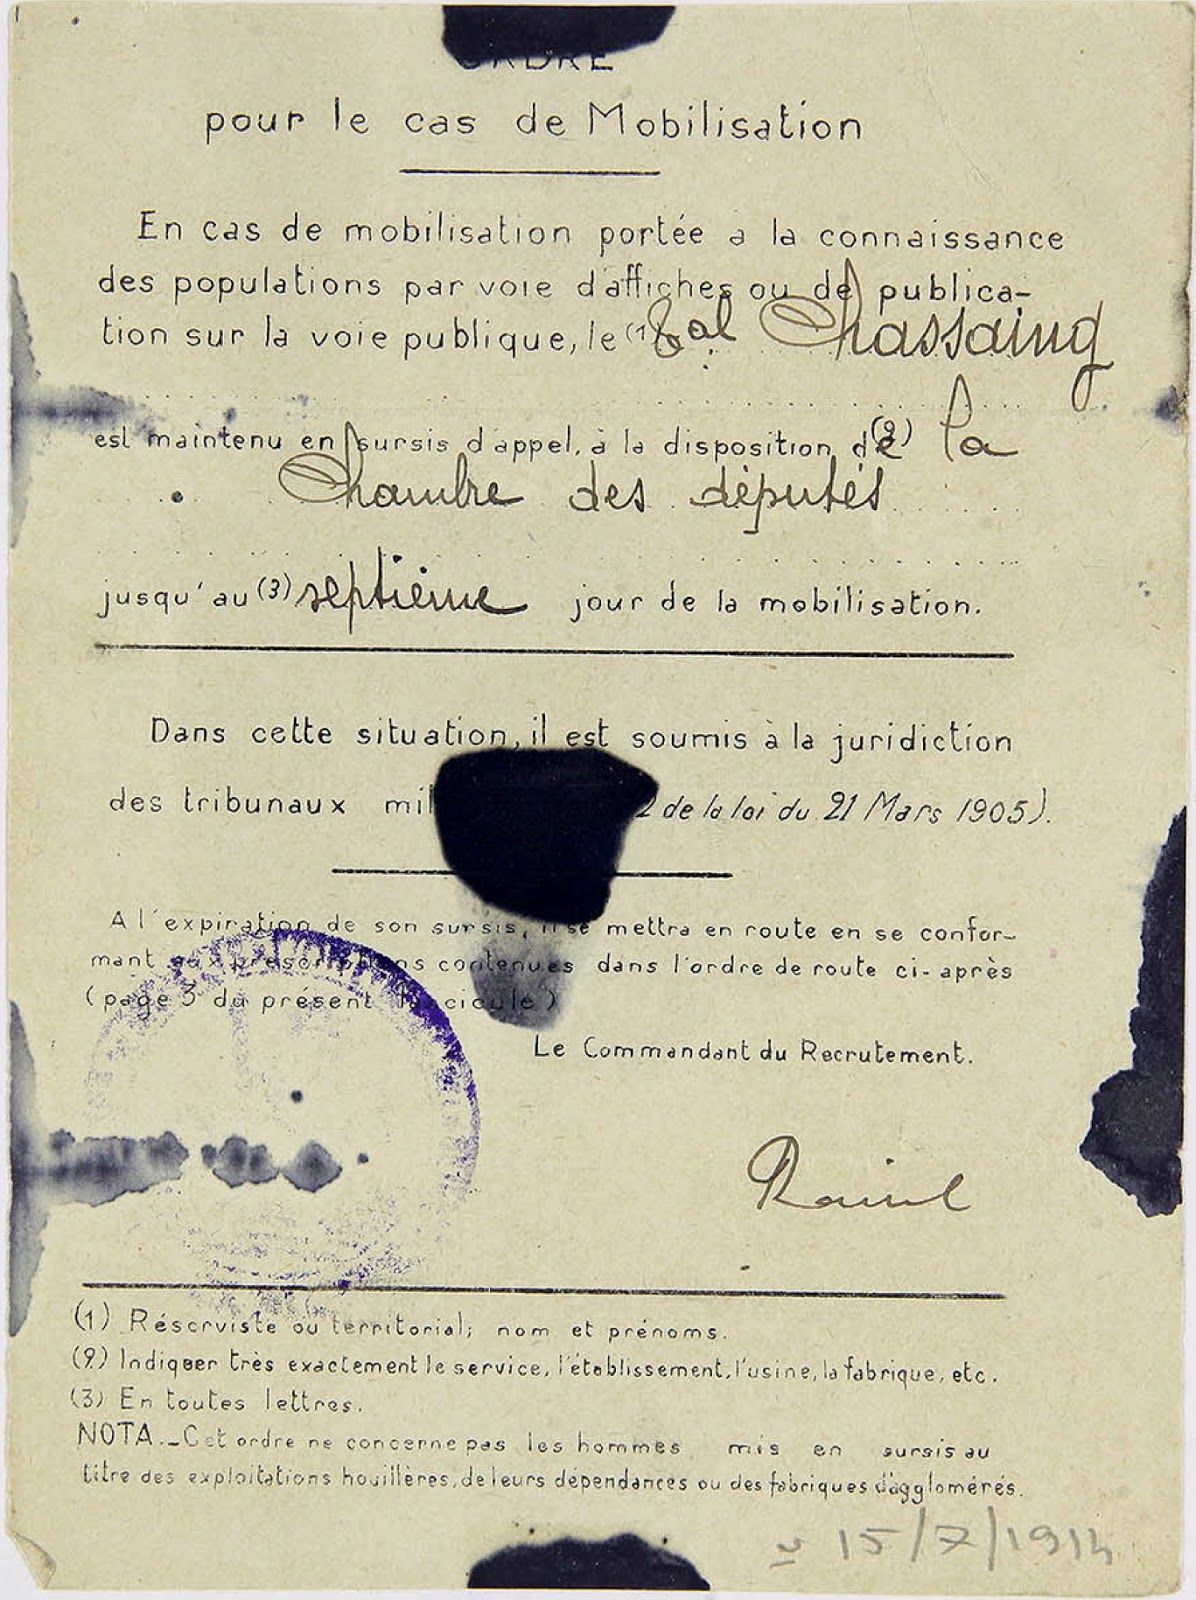 ORDRE
pour le cas de Mobilisation
En cas de mobilisation portée a la connaissance
des populations par voie d'affiches ou de publica-
tion sur la voie publique, le (1) Chassaing
est maintenu en sursis d'appel, à la disposition de (2) la
Chambre des députés
jusqu'au (3) septième jour de la mobilisation.
Dans cette situation, il est soumis à la juridiction
des tribunaux mil 2 de la loi du 21 Mars 1905).
A l'expiration de son sursis, il se mettra en route en se confor-
mant aux prescriptions contenues dans l'ordre de route ci-après
(page 3 du présent fascicule)
Le Commandant du Recrutement.
(1) Réserviste ou territorial; nom et prénoms.
(2) Indiquer très exactement le service, l'établissement, l'usine, la fabrique, etc.
(3) En toutes lettres.
NOTA._Cet ordre ne concerne pas les hommes mis en sursis au
titre des exploitations houillères, de leurs dépendances ou des fabriques d'agglomérés.
15/7/1914